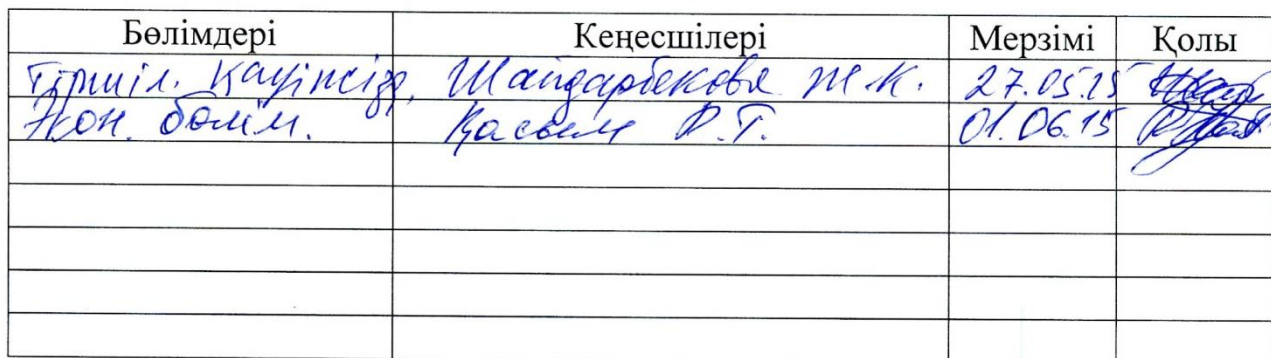 Бөлімдері Кеңесшілері Мерзімі Қолы
Тіршіл. қауіпсізд. Шайдарбекова Ж.К. 27.05.15
Экон. бөлім. Қасым Р.Т. 01.06.15